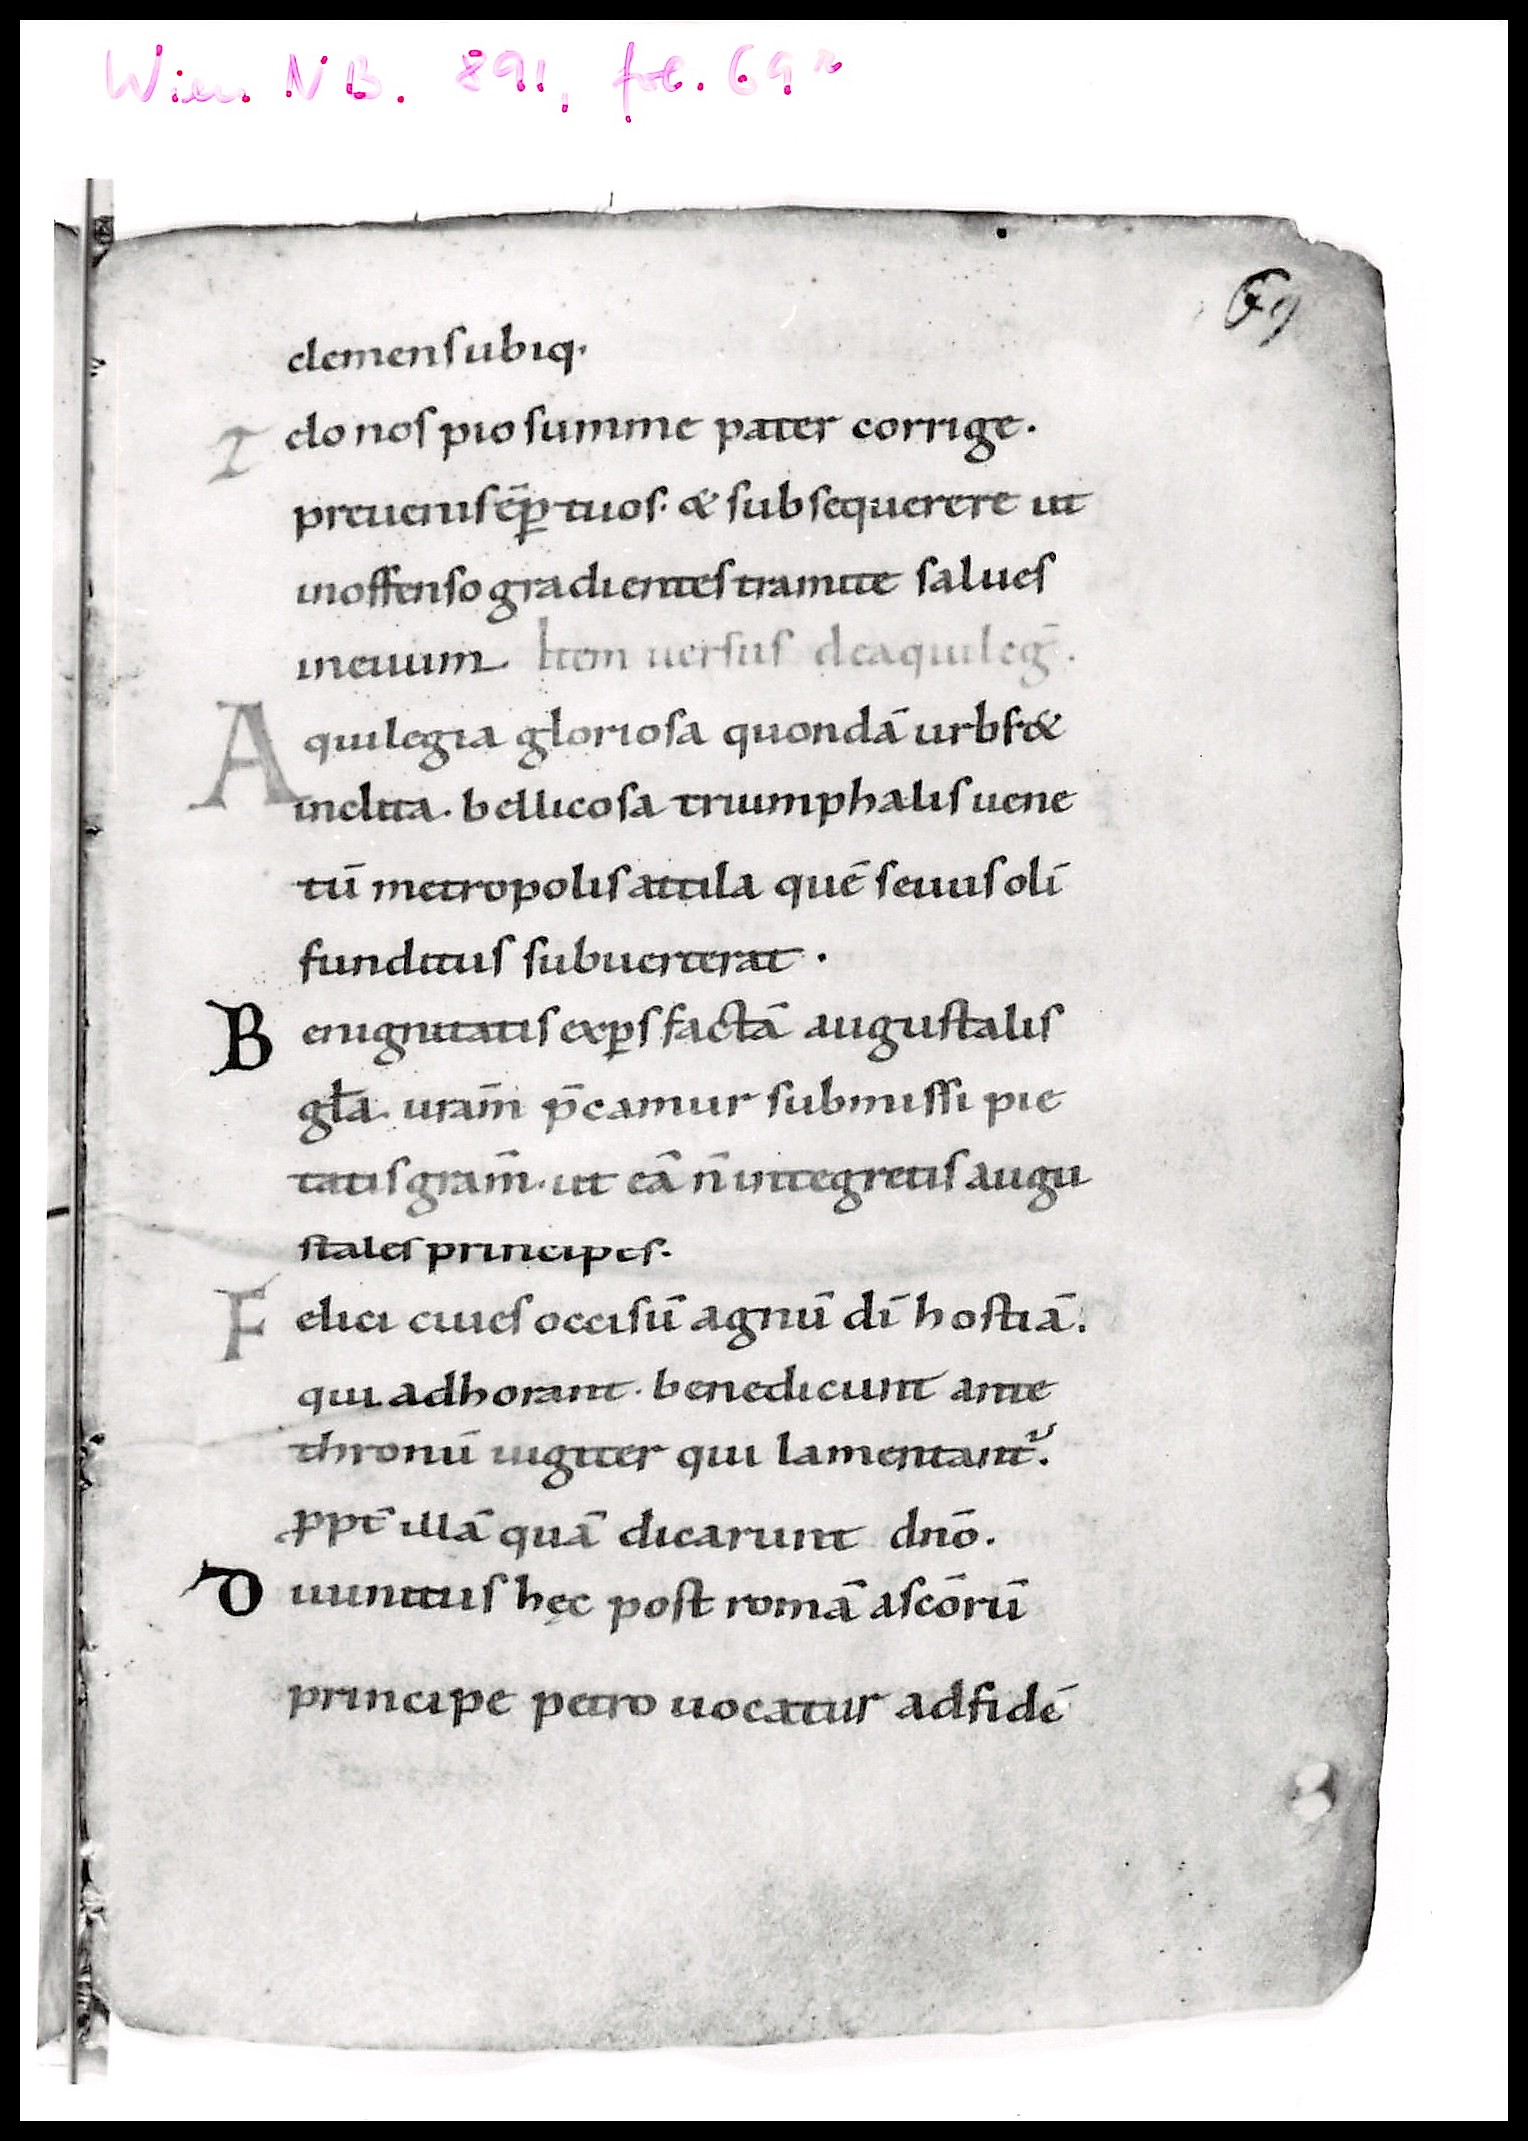 Wien NB. 891, fol. 69r
69
clemens ubiq·
I do nos pio summe pater corrige·
preueni sēp tuos· & subsequerere ut
inoffenso gradientes tramite salues
in euum Item uersus de aquileḡ·
Aquilegia gloriosa quondā urbs &
inclita· bellicosa triumphalis uene
tū metropolis attila quē seuus olī
funditus subuerterat·
Benignitatis expers factā augustalis
gła· uram̄ p̄camur submissi pie
tatis gram̄· ut eā n̄ integretis augu
stales principes·
Felici ciues occisū agnū dī hostiā·
qui adhorant· benedicunt ante
thronū iugiter qui lamentant᷒·
ꝓpt̄ illā quā dicarunt dn̄o·
Diuinitus hęc post romā a sc̄orū
principe petro uocatur ad fidē